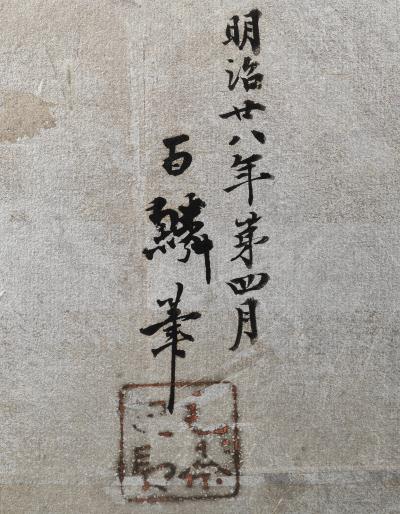 明治廿八年第四月
百鱗筆